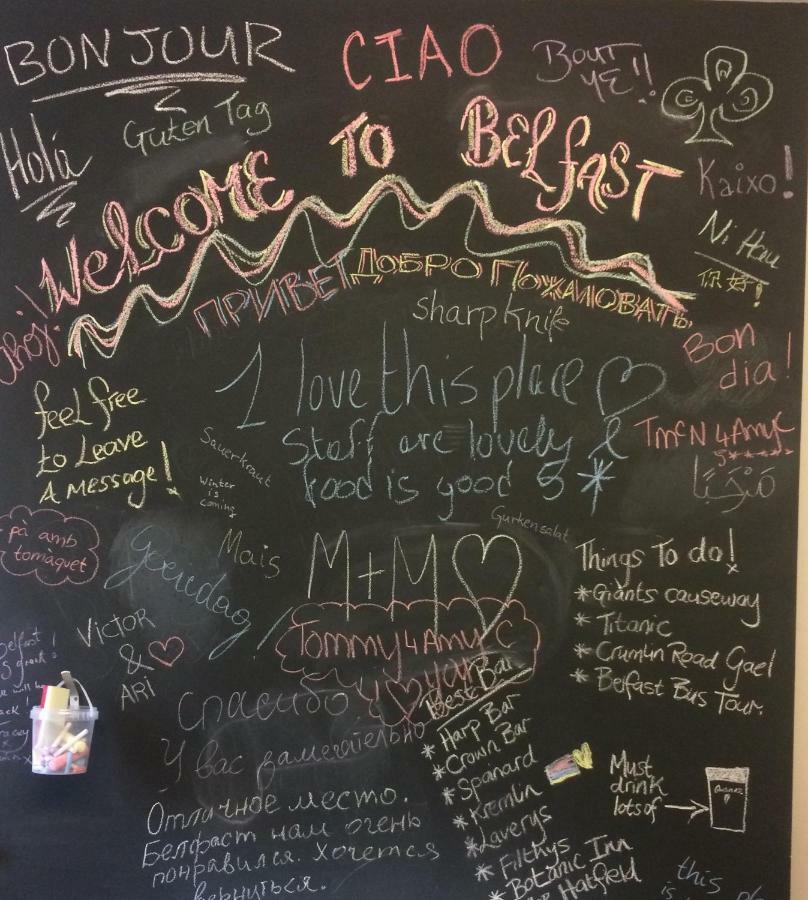 BONJOUR
CIAO
BOUT
YE!!
Holá
Guten Tag
WELCOME TO BELFAST
Kaixo!
Ni Hau
你好!
ПРИВЕТ
ДОБРО ПОЖАЛОВАТЬ
sharp knife
Bon
dia!
I love this place
Staff are lovely &
food is good 5*
feel free
to Leave
A message!
Sauerkraut
Winter
is
coming
TMcN 4 AmyC
5*****
مَرْحَبًا
Gurkensalat
pà amb
tomàquet
goeiedag!
Mais
M+M
Things To do!
*Giants causeway
* Titanic
* Crumlin Road Gael
* Belfast Bus Tour.
VICTOR
&
ARI
Tommy 4 Amy C
Спасибо
У вас замечательно
Отличное место.
Белфаст нам очень
понравился. Хочется
вернуться.
Best Bar
* Harp Bar
* Crown Bar
* Spanard
* Kremlin
* Laverys
* Filthys
* Botanic Inn
Hatfield
Must
drink
lots of
this
is